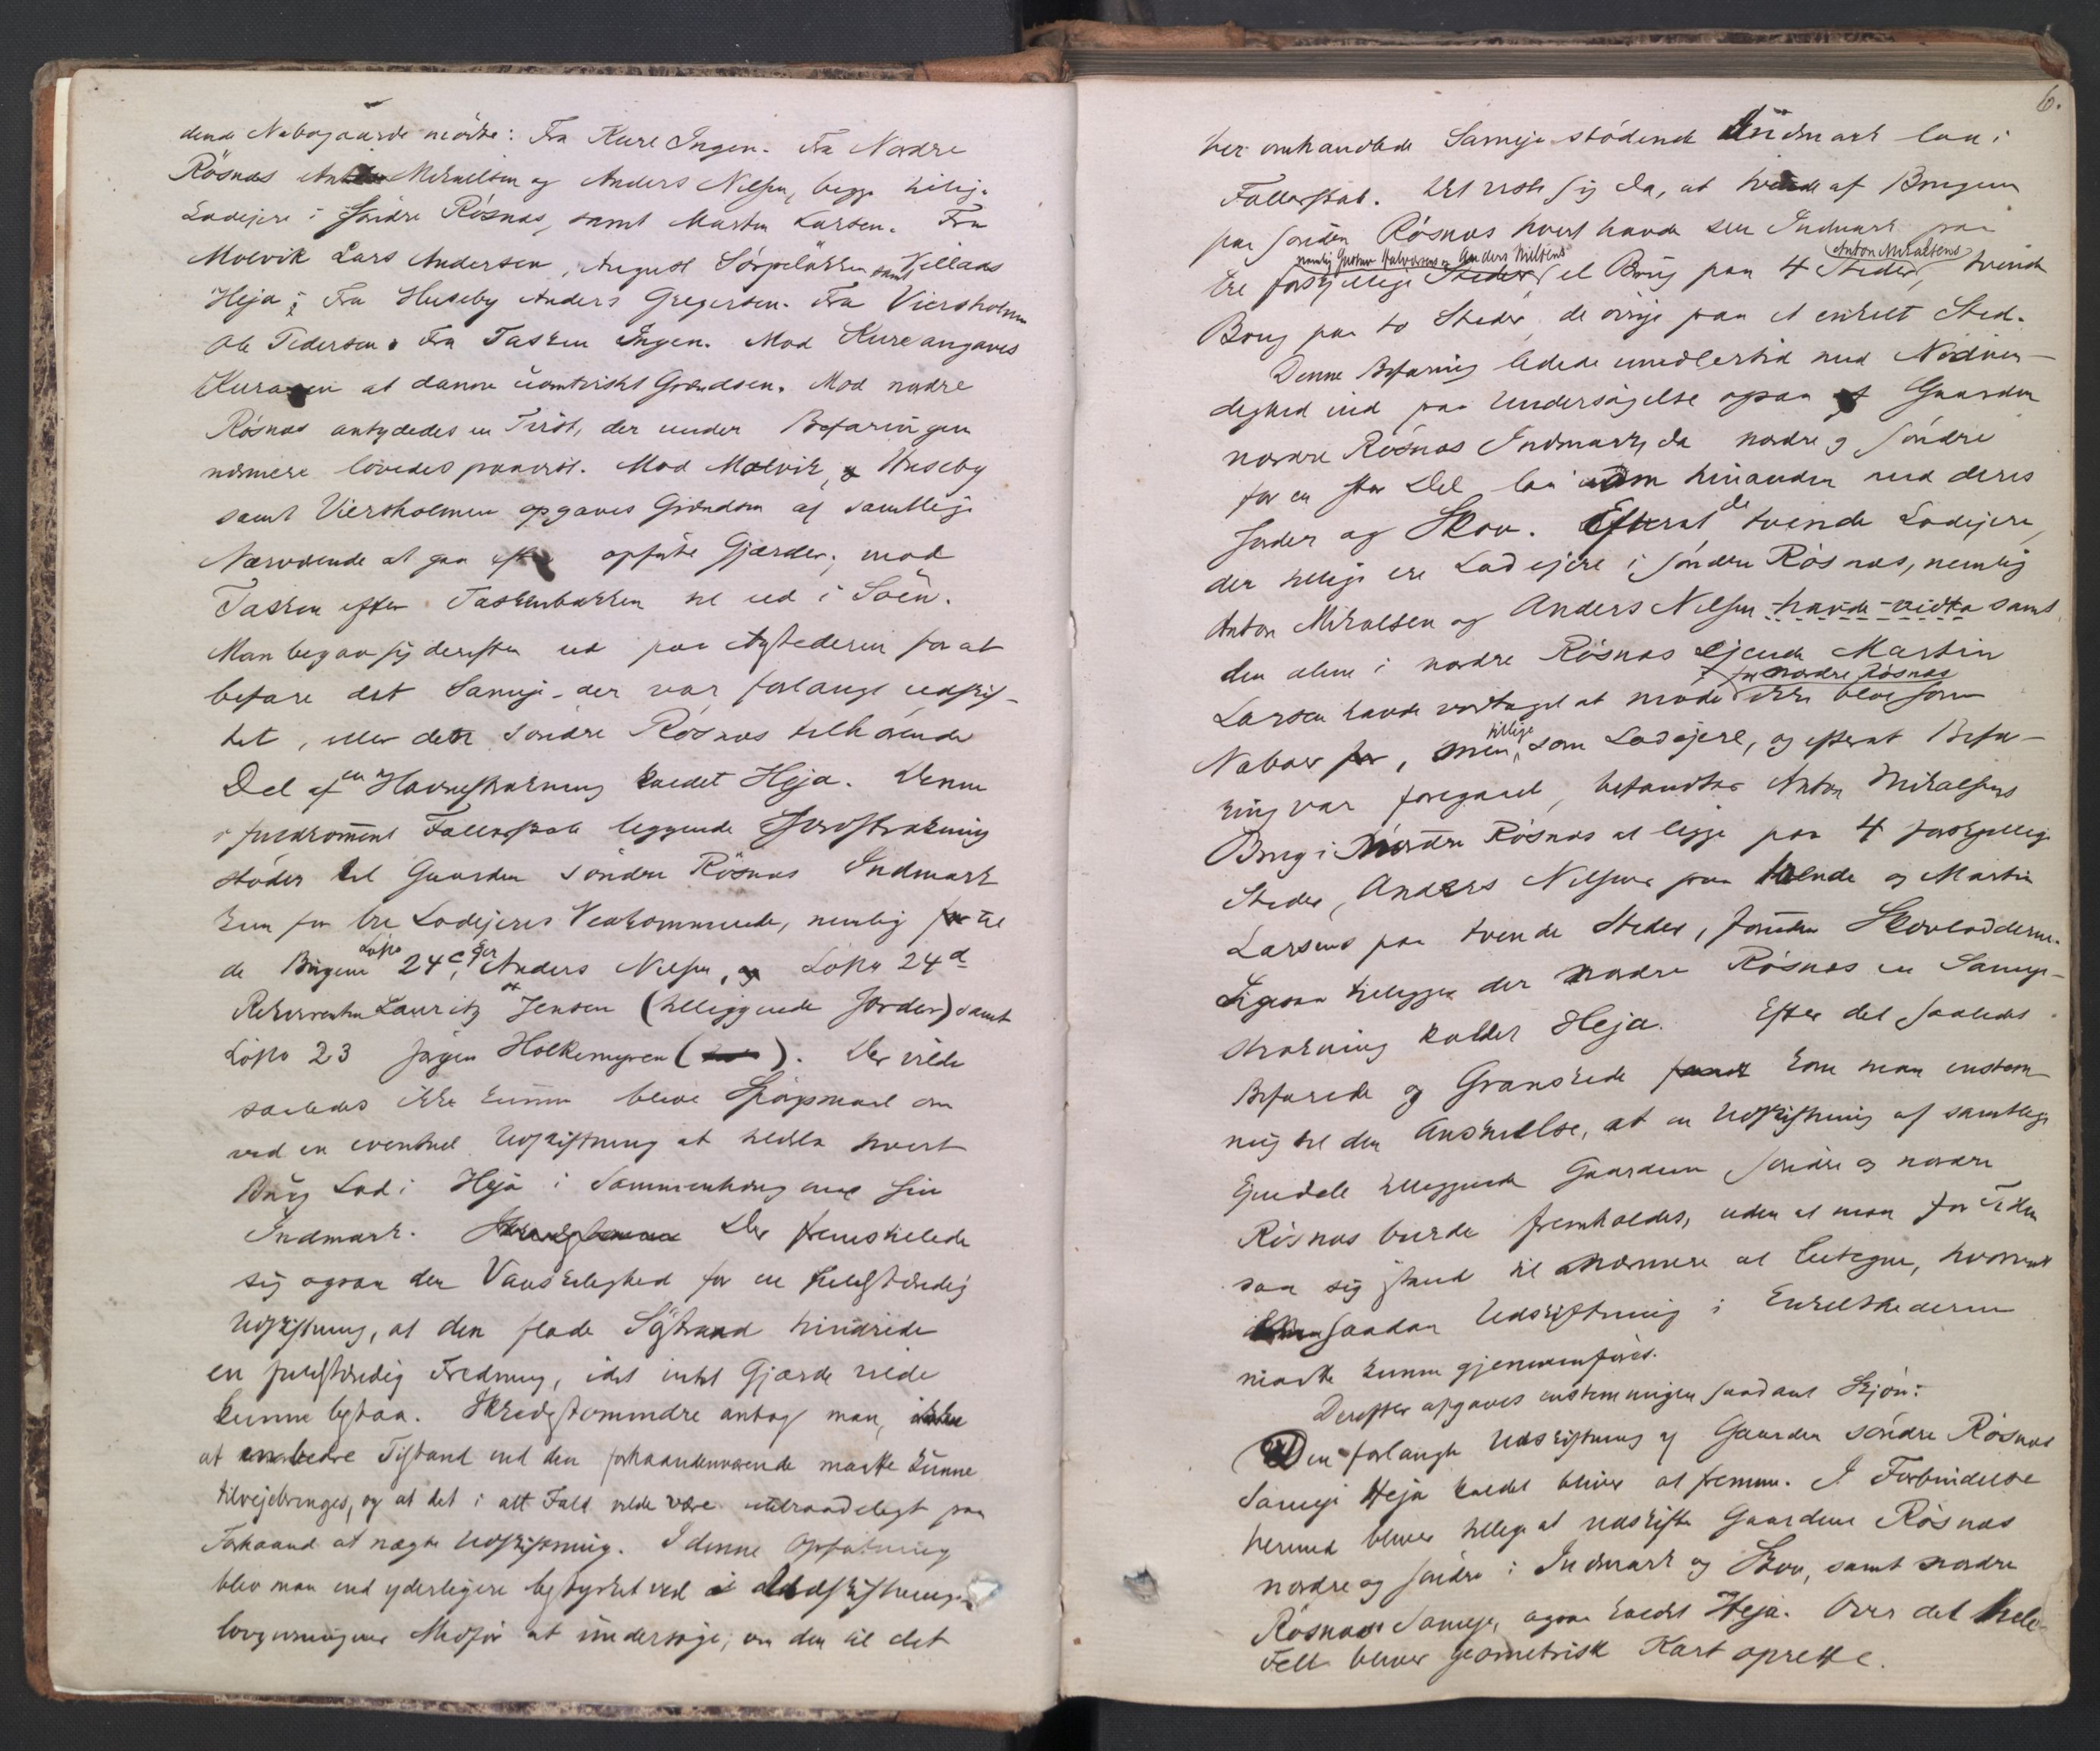 dende Nabogaarde mödte: Fra Kure Ingen. Fra Nordre
Rösnæs Anton Mikaelsen og Anders Nilsen, begge tillige
Lodejere i Söndre Rösnæs, samt Martin Larsen. Fra
Molvik Lars Andersen, August Sörpeløkken samt Villads
Heja; Fra Huseby Anders Gregersen. Fra Viersholmen
Ole Pedersen. Fra Tasken Ingen. Mod Kure angaves
Kuraaen at danne uomtvistet Grændsen. Mod nordre
Rösnæs antydedes en Tvist, der under Befaringen
nærmere lovedes paavist. Mod Molvik, Huseby
samt Viersholmen opgaves Grændsen af samtlige
Nærværende at gaa efter opførte Gjærder; mod
Tasken efter Taskenbækken til ud i Söen.
Man begav sig derefter ud paa Aastederne for at
befare det Sameje der var forlangt udskif-
tet, eller den söndre Rösnæs tilhørende
Del af en Havnestrækning kaldet Heja. Denne
i fuldkomment Fællesskab liggende Jordstrækning
stöder til Gaarden söndre Rösnæs Indmark
kun for tre Lodejeres Vedkommende, nemlig til
de Brugene Löpno 24c, Anders Nilsen, Löpno 24d
Rekvirenten Lauritz Jensen (tilliggende Jorder) samt
Löpno 23 Jørgen Holkemyren. Der vilde
saaledes ikke kunne blive Spörgsmaal om
ved en eventuel Udskiftning at tildele hvert
Brug Lod i Heja i Sammenhæng med sin
Indmark. Der fremstillede
sig ogsaa den Vanskelighed for en fuldstændig
Udskiftning, at den flade Søstrand hindrede
en fuldstændig Fredning, idet intet Gjærde vilde
kunne bestaa. Ikkedestomindre antog man,
at en bedre Tilstand end den forhaandenværende maatte kunne
tilvejebringes, og at det i alt Fald vilde være utilraadeligt paa
Forhaand at nægte Udskiftning. I denne Opfatning
blev man end yderligere bestyrket ved i Udskiftnings-
lovgivningens Medfør at undersøge, om den til det
6.
her omhandlede Sameje stödende Indmark laa i
Fællesskab. Det viste sig da, at tvende af Brugene
paa söndre Rösnæs hvert havde sin Indmark paa
nemlig Gustav Halvorsens og Anders Nilsens Anton Mikalsens
tre forskjellige Steder, et Brug paa 4 Steder, tvende
Brug paa to Steder, de övrige paa et enkelt Sted.
Denne Befaring ledede imidlertid med Nödven-
dighed ind paa Undersögelse ogsaa af Gaarden
nordre Rösnæs Indmark, da nordre og söndre
for en stor Del laa om hinanden med deres
Jorder og Skov. Efterat de tvende Lodejere,
der tillige ere Lodejere i söndre Rösnæs, nemlig
Anton Mikalsen og Anders Nilsen havde vidta samt
den alene i nordre Rösnæs ejende Martin
for nordre Rösnæs
Larsen havde vedtaget at møde ikke blot som
Naboer, men tillige som Lodejere, og efterat Befa-
ring var foregaaet, befandtes Anton Mikalsens
Brug i Nordre Rösnæs at ligge paa 4 forskjellige
Steder, Anders Nilsens paa tvende og Martin
Larsens paa tvende Steder, foruden Skovlodderne.
Ligesaa tilligger der nordre Rösnæs en Sameje-
strækning kaldet Heja. Efter det saaledes
Befarede og Granskede kom man enstem-
mig til den Anskuelse, at en Udskiftning af samtlige
Ejendele tilliggende Gaardene söndre og nordre
Rösnæs burde fremholdes, uden at man for Tiden
saa sig istand til nærmere at betegne, hvorvidt
saadan Udskiftning i Enkelthederne
maatte kunne gjennemføres.
Derefter afgaves enstemmigen saadant Skjön:
Den forlangte Udskiftning af Gaarden söndre Rösnæs
Sameje Heja kaldet bliver at fremme. I Forbindelse
hermed bliver tillige at udskifte Gaardene Rösnæs
nordre og söndre i Indmark og Skov, samt nordre
Rösnæs Sameje, ogsaa kaldet Heja. Over det hele
Felt bliver geometrisk Kart oprette.